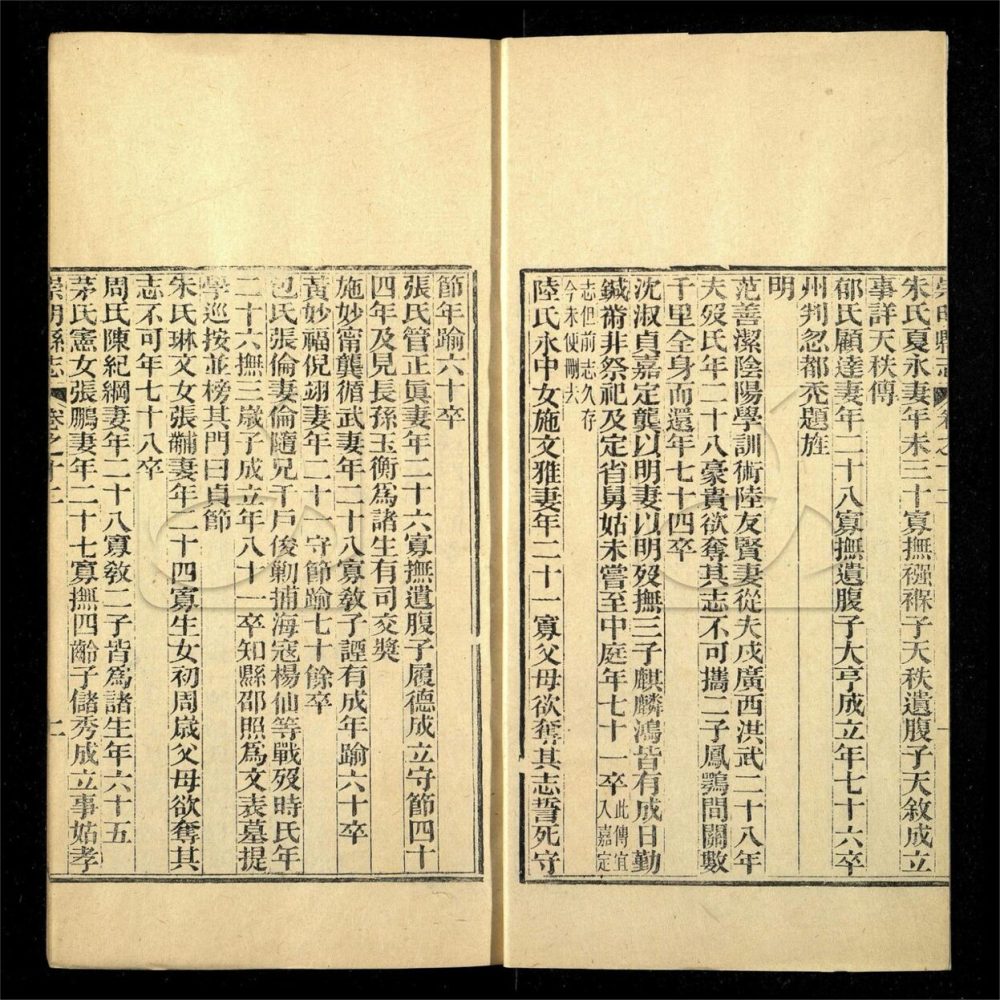 崇明縣志 卷之十二
朱氏夏永妻年未三十寡撫襁褓子天秩遺腹子天敘成立
事詳天秩傳
郁氏顧達妻年二十八寡撫遺腹子大亨成立年七十六卒
州判忽都禿題旌
明
范善潔陰陽學訓術陸友賢妻從夫戍廣西洪武二十八年
夫歿氏年二十八豪貴欲奪其志不可攜二子鳳鶚間關數
千里全身而還年七十四卒
沈淑貞嘉定龔以明妻以明歿撫三子麒麟鴻皆有成日勤
鍼黹非祭祀及定省舅姑未嘗至中庭年七十一卒此傳宜入嘉定
志但前志久存今未便刪去
陸氏永中女施文雅妻年二十一寡父母欲奪其志誓死守
節年踰六十卒
張氏管正眞妻年二十六寡撫遺腹子履德成立守節四十
四年及見長孫玉衡爲諸生有司交獎
施妙甯龔循武妻年二十八寡教子諲有成年踰六十卒
黃妙福倪翊妻年二十一守節踰七十餘卒
包氏張倫妻倫隨兄千戶俊勦捕海寇楊仙等戰歿時氏年
二十六撫三歲子成立年八十一卒知縣邵照爲文表墓提
學巡按並榜其門曰貞節
朱氏琳文女張黼妻年二十四寡生女初周歲父母欲奪其
志不可年七十八卒
周氏陳紀綱妻年二十八寡教二子皆爲諸生年六十五
茅氏憲女張鵬妻年二十七寡撫四齡子儲秀成立事姑孝
崇明縣志 卷之十二 二